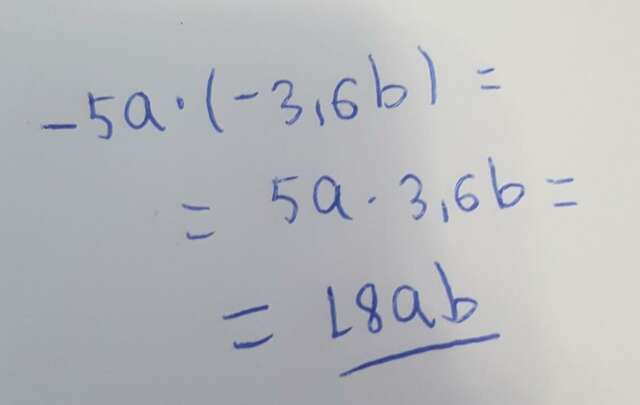 -5a·(-3,6b) =
= 5a·3,6b =
= 18ab